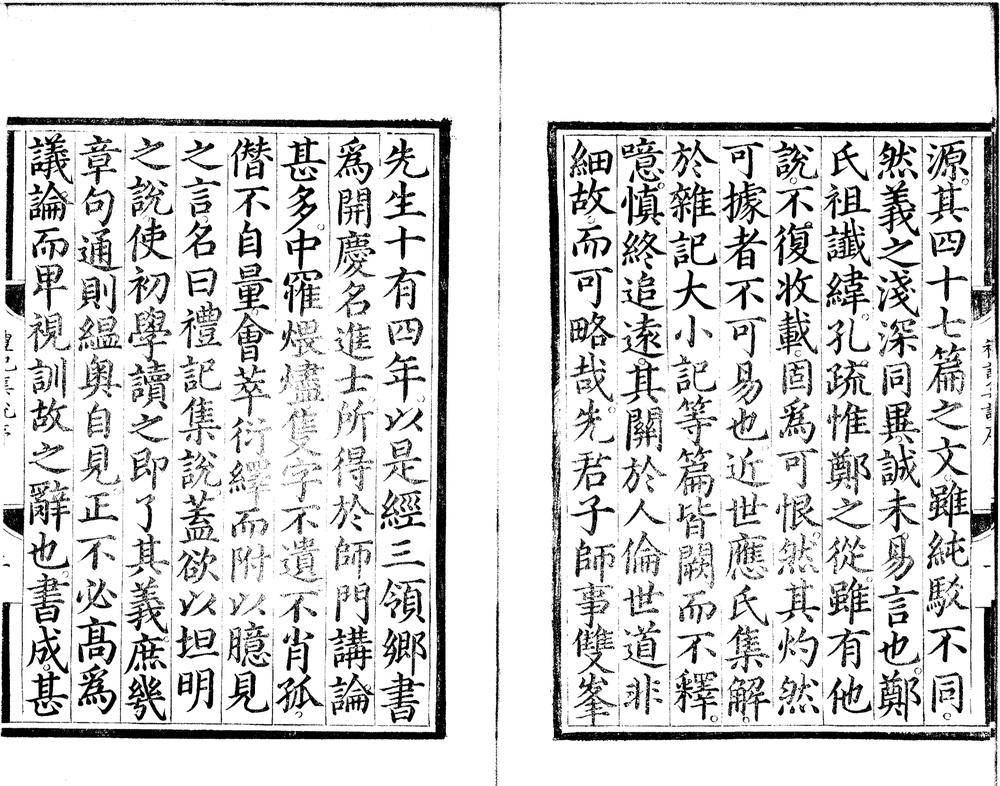 源。其四十七篇之文。雖純駁不同。
然義之淺深同異。誠未易言也。鄭
氏祖讖緯。孔疏惟鄭之從。雖有他
說。不復收載。固爲可恨。然其灼然
可據者不可易也。近世應氏集解。
於雜記大小記等篇皆闕而不釋。
噫。愼終追遠。其關於人倫世道非
細故。而可略哉。先君子師事雙峯
先生十有四年。以是經三領鄉書
爲開慶名進士。所得於師門講論
甚多。中罹煨燼。隻字不遺。不肖孤。
僭不自量。會萃衍繹。而附以臆見
之言。名曰禮記集說。蓋欲以坦明
之說。使初學讀之。即了其義。庶幾
章句通則縕奧自見。正不必高爲
議論。而卑視訓故之辭也。書成。甚
禮記集說序
一